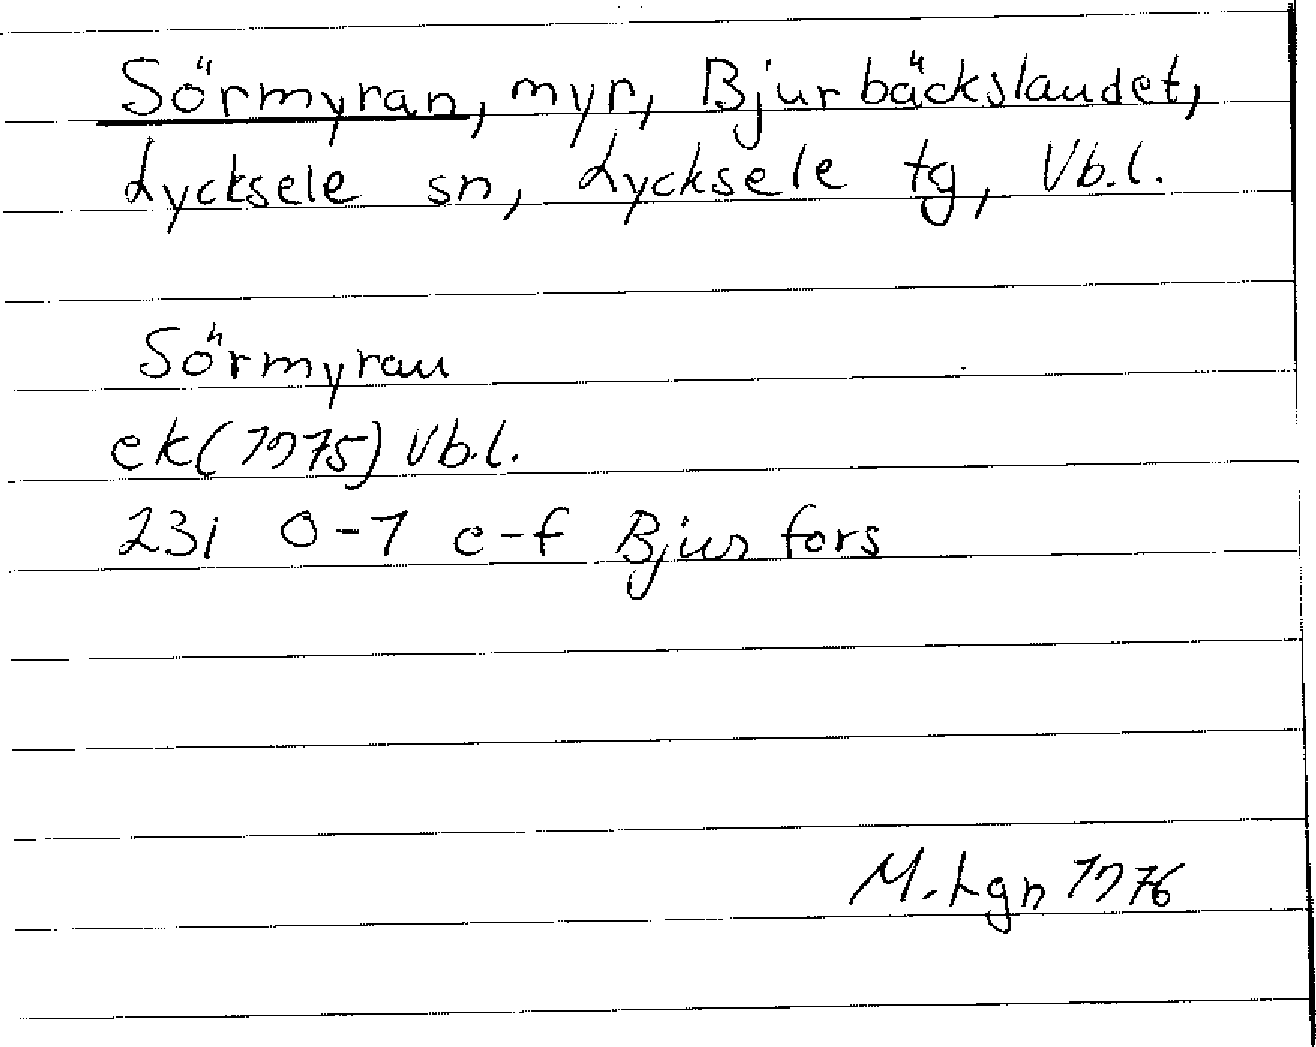 Sörmyran, myr, Bjurbäckslandet,
Lycksele sn, Lycksele tg, Vb.l.
Sörmyran
ek(1975) Vb.l.
23I 0-1 e-f Bjurfors
M.Lgn 1976